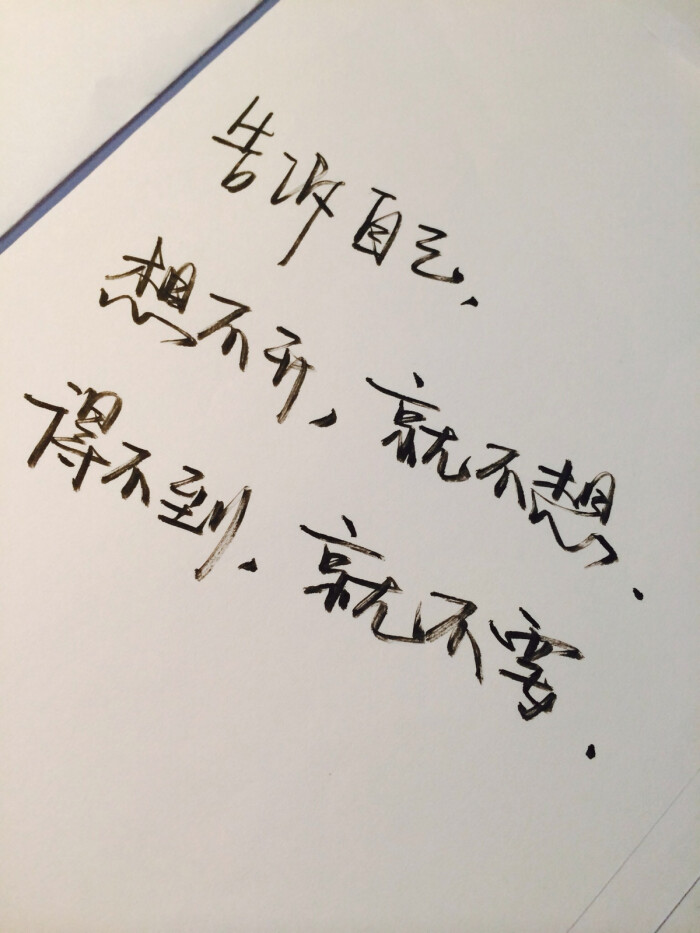 告诉自己，
想不开，就不想.
得不到.就不要.